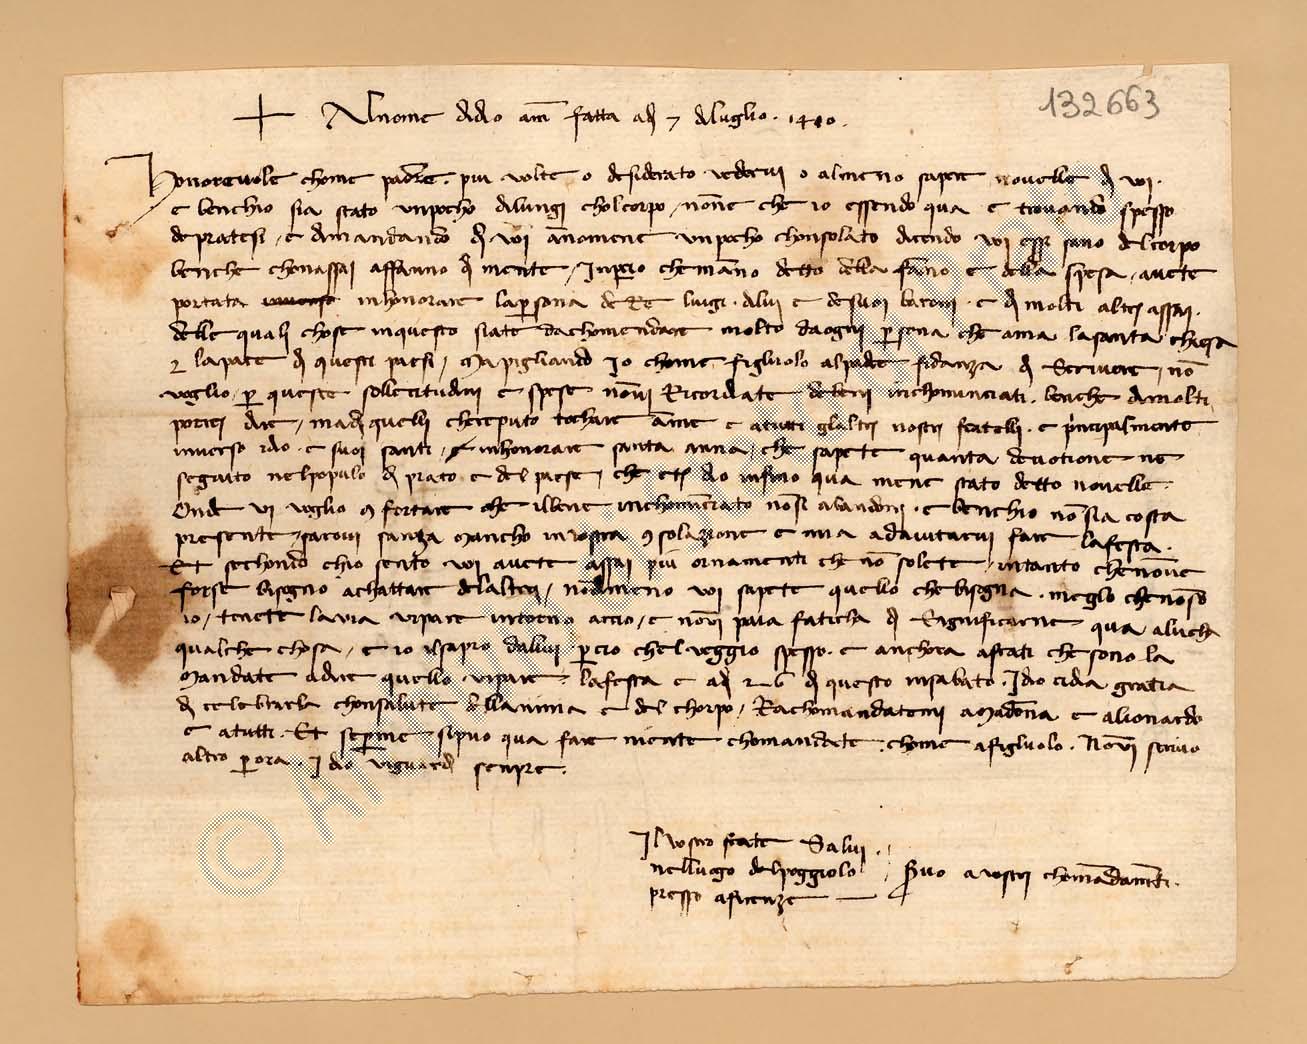 132663
+ Al nome di dio am̅ fatta adi 7 di luglio. 1410.
Honorevole chome padre. piu volte o desiderato vedervi o almeno sapere novelle di voi.
e benchio sia stato unpocho dilungi cholcorpo / none che io essendo qua e trovando spesso
de pratesi / e dimandando di voi anomene unpocho chonsolato dicendo voi esser sano delcorpo
benche chonassai affanno di mente / Inpercio chemano detto della fano e della spesa / avete
portata inhonorare lapersona de Re luigi. dlui e desuoi baroni. e di molti altri assai.
delle quali chose inquesto siate dachomendare molto daogni persona che ama lasanta chiesa
z lapace di questi paesi / Mapigliando Io chome figluolo alpadre fidanza di Scrivere / no
voglio / per queste sollecitudini e spese novi Ricordate debeni inchominciati. benche dimolti
potrei dire / madi quelli chereputo tochare ame e atutti glaltri nostri fratelli. e principalmente
inverso idio. e suoi santi / e inhonorare santa anna / che sapete quanta devotione ne
seguito nelpopulo di prato e del paese / che dio infino qua mene stato detto novelle.
Onde vi voglio 9fortare che ilbene inchominciato nosi abandoni. e benchio no sia costa
presente / sarovi sanza mancho in vostra 9solazione e mia adaiutarvi fare lafesta.
Et sechondo chio sento voi avete assai piu ornamenti che no solete / intanto chenone
forse bisogno achattare delaltrui / nodimeno voi sapete quello chebisogna. meglo chenoso
io / tenete lavia vipare intorno accio / e novi paia faticha di Significarne qua alucha
qualche chosa / e io ilsapro dallui. percio chel veggio spesso. e anchora afrati che sono la
Mandate adire quello vipare. lafesta e adi 26 di questo insabato. Idio cidia gratia
di celebrarla chonsalute dellanima e del chorpo / Rachomandatemi aMadona e alionardo
e atutti. Et seperme sipuo qua fare niente chomandate. chome afigluolo. Novi scrivo
altro per ora. Idio viguardi senpre.
Il vostro frate Salvi.
nelluogo delpoggiolo / Suo avostri chomadamti.
presso afirenze